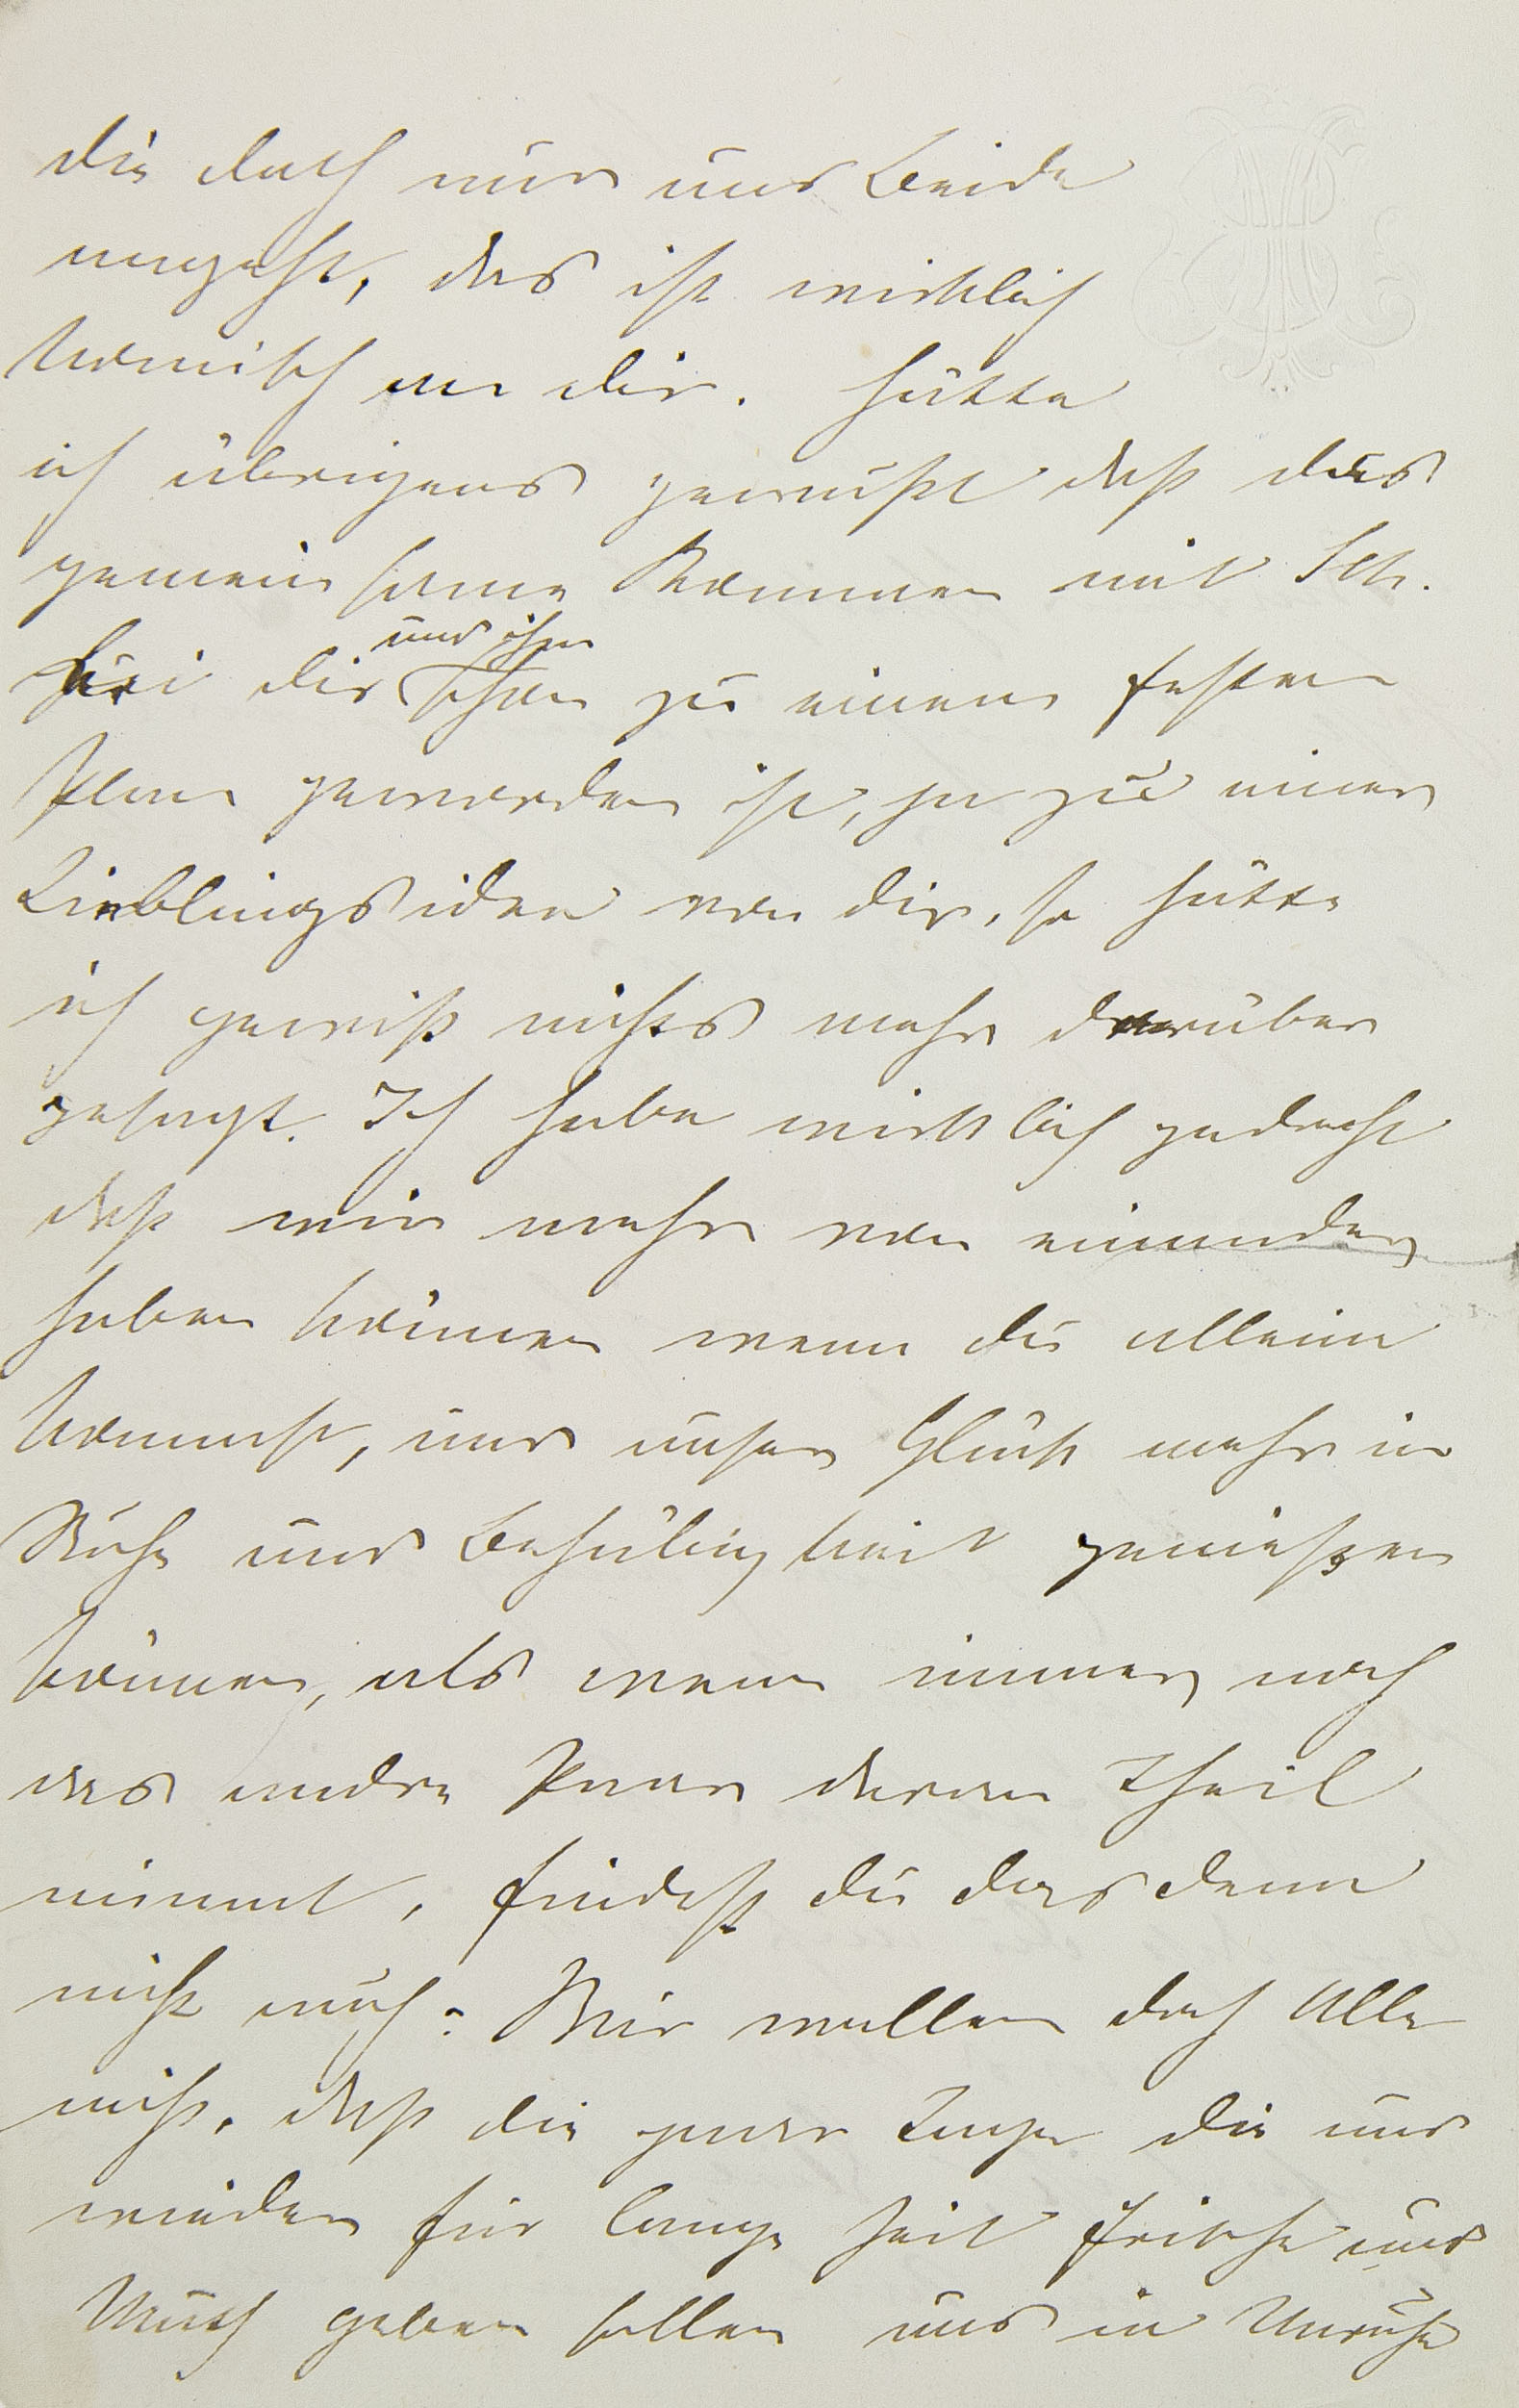 die doch nur uns Beide
angeht, das ist wirklich
komisch an dir. Hätte
ich übrigens gewußt daß das
gemeinsame Kommen mit Sch.
bei dir und ihm schon zu einem festen
Plan geworden ist, ja zu einer
Lieblingsidee von dir, so hätte
ich gewiß nichts mehr darüber
gesagt. Ich habe wirklich gedacht
daß wir mehr von einander
haben können wenn du allein
kommst, und unser Glück mehr in
Ruhe und Behäbigkeit genießen
können, als wenn immer noch
das andre Paar daran Theil
nimmt, findest du das denn
nicht auch? Wir wollen doch Alle
nicht, daß die paar Tage die uns
wieder für lange Zeit Frische und
Muth geben sollen uns in Unruhe